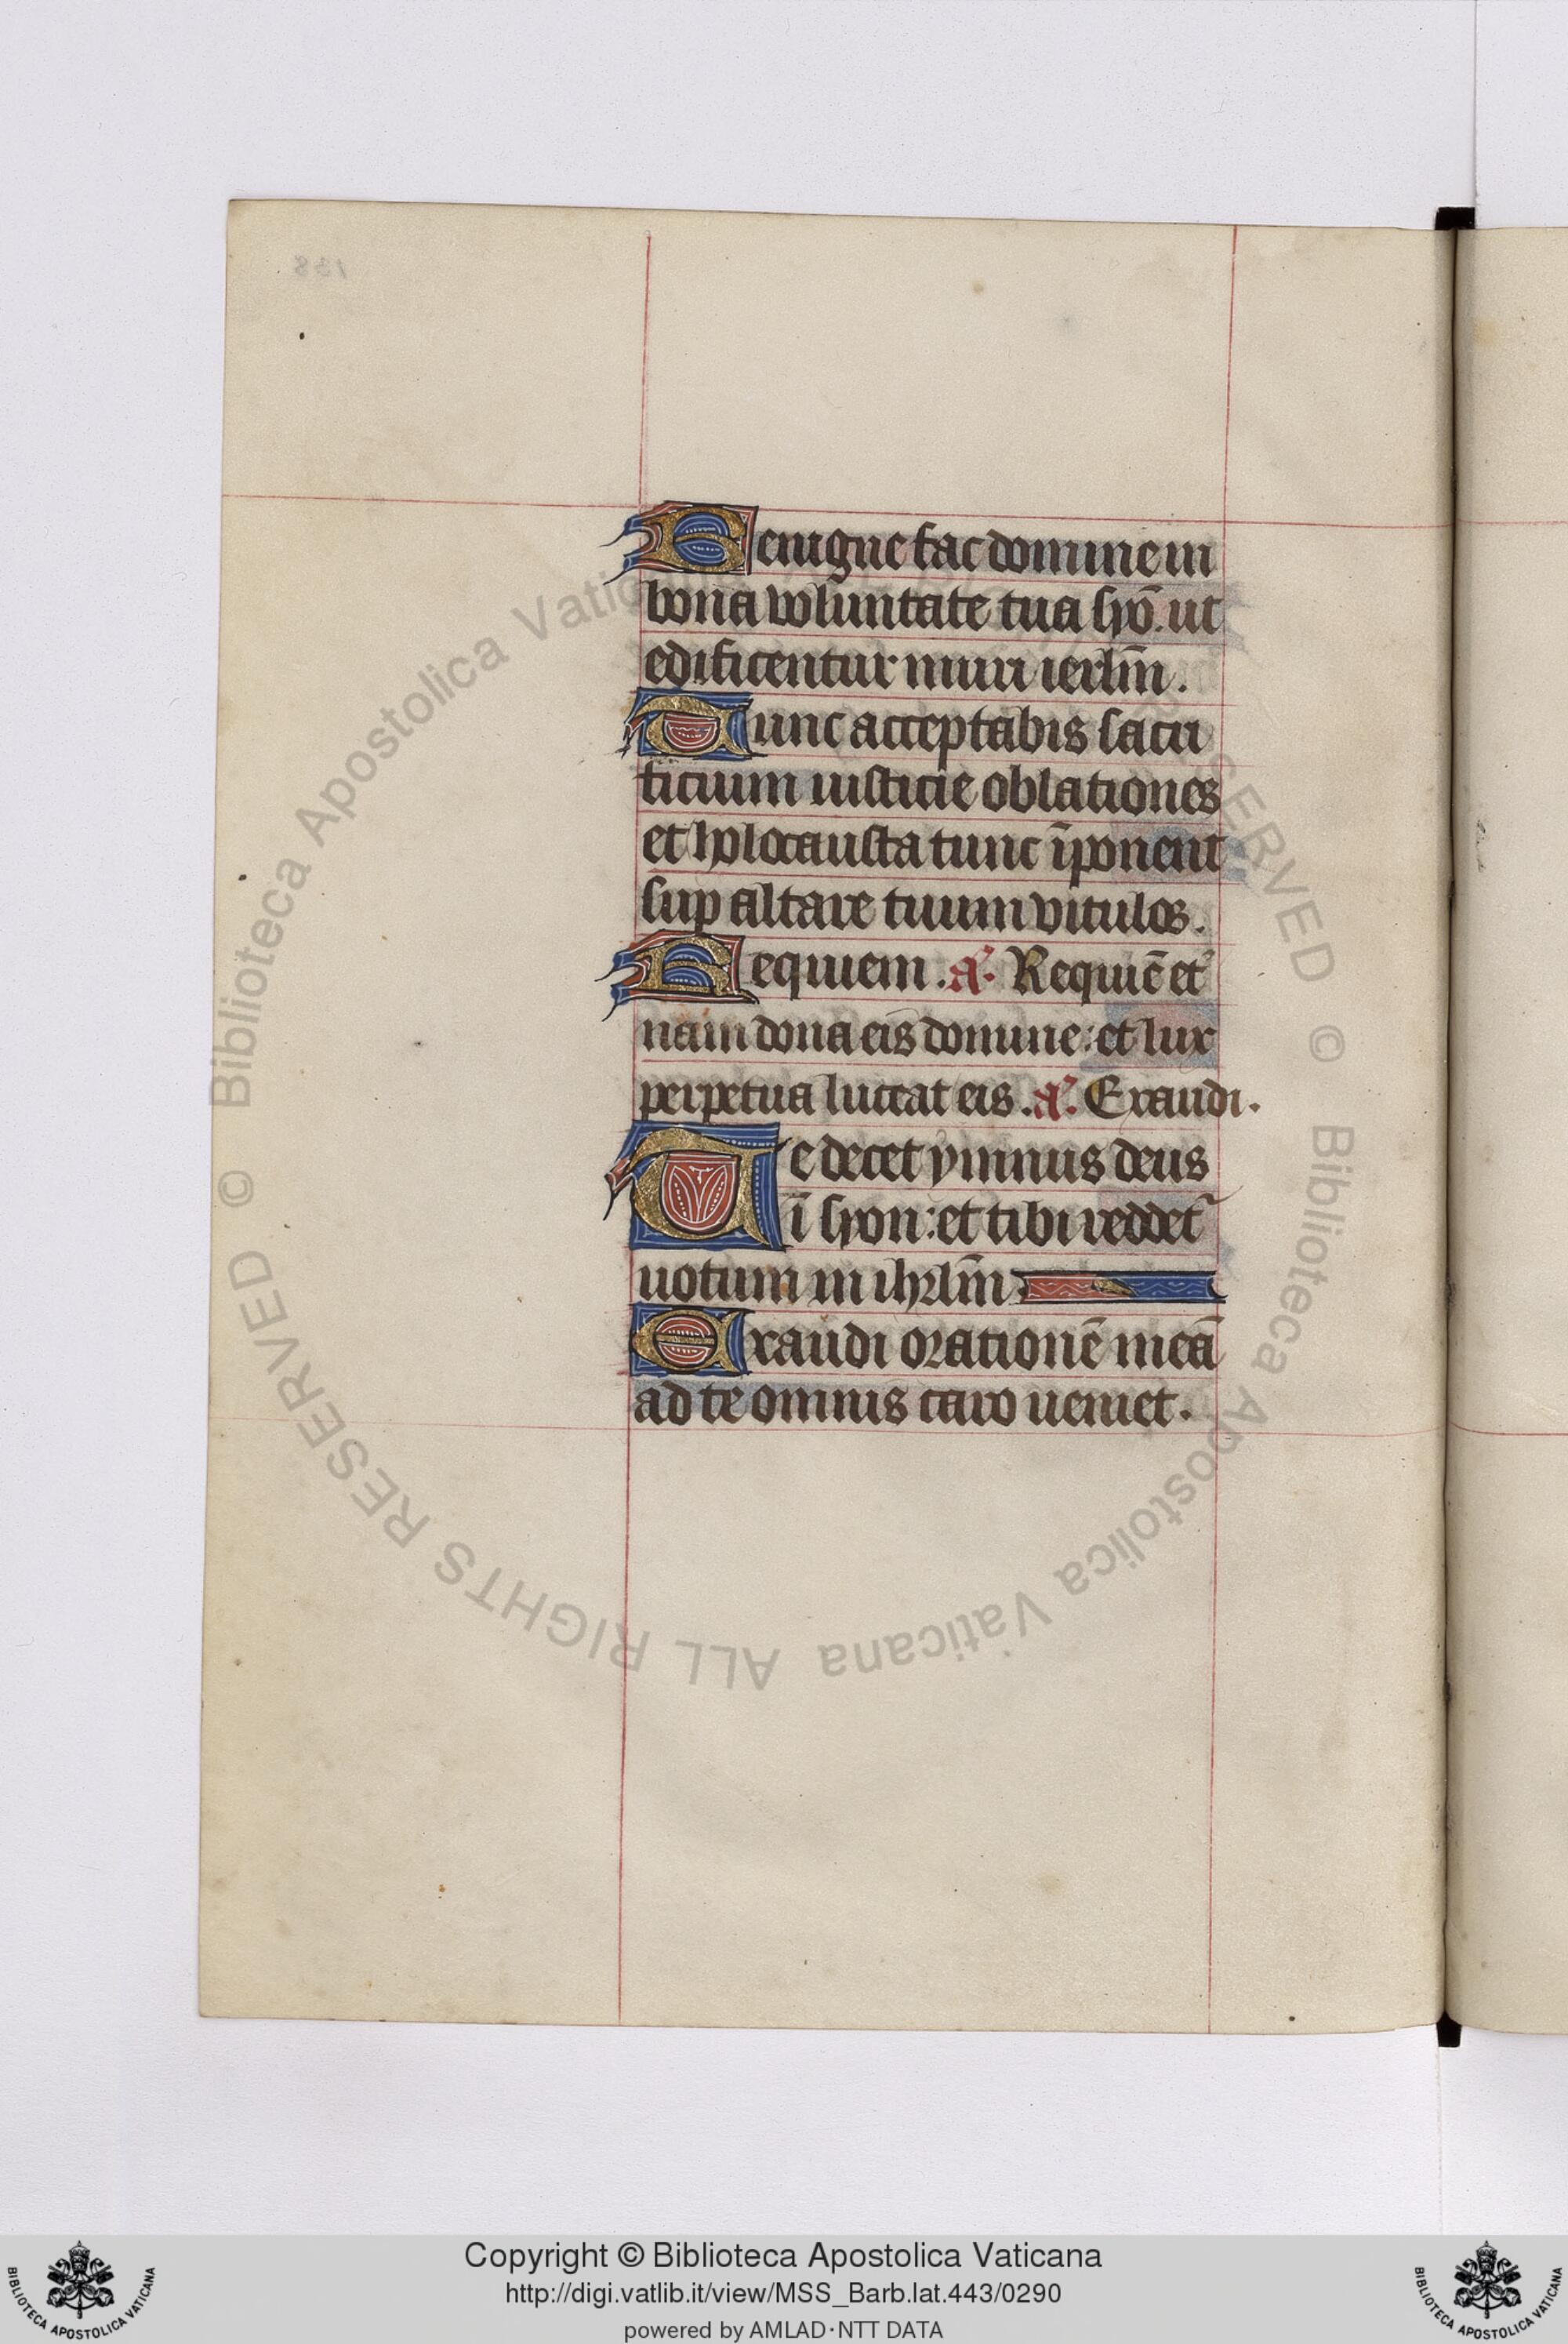 138
Benigne fac domine in
bona voluntate tua syō. ut
edificentur muri ierl̄m.
Tunc acceptabis sacri
ficium iusticie oblationes
et holocausta tunc īponent
sup altare tuum vitulos.
Requiem. a᷒. Requiē et᷒
nam dona eis domine: et lux
perpetua luceat eis. a᷒. Exaudi.
Te decet ymnus deus
ī syon: et tibi reddet᷒
uotum in ihrl̄m.
Exaudi orationē meā
ad te omnis caro ueniet.
© Biblioteca Apostolica Vaticana ALL RIGHTS RESERVED
© Biblioteca Apostolica Vaticana ALL RIGHTS RESERVED
Copyright © Biblioteca Apostolica Vaticana
http://digi.vatlib.it/view/MSS_Barb.lat.443/0290
powered by AMLAD·NTT DATA
BIBLIOTECA APOSTOLICA VATICANA
BIBLIOTECA APOSTOLICA VATICANA